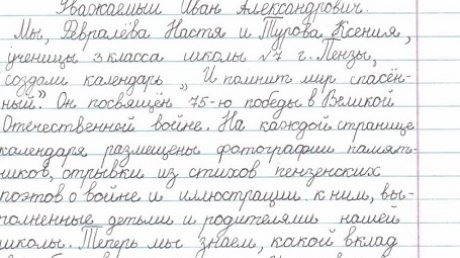 Уважаемый Иван Александрович.
Мы, Февралёва Настя и Турова Ксения,
ученицы 3 класса школы №7 г. Пензы,
создали календарь „И помнит мир спасён-
ный". Он посвящён 75-ю победы в Великой
Отечественной войне. На каждой странице
календаря размещены фотографии памят-
ников, отрывки из стихов пензенских
поэтов о войне и иллюстрации к ним, вы-
полненные детьми и родителями нашей
школы. Теперь мы знаем, какой вклад